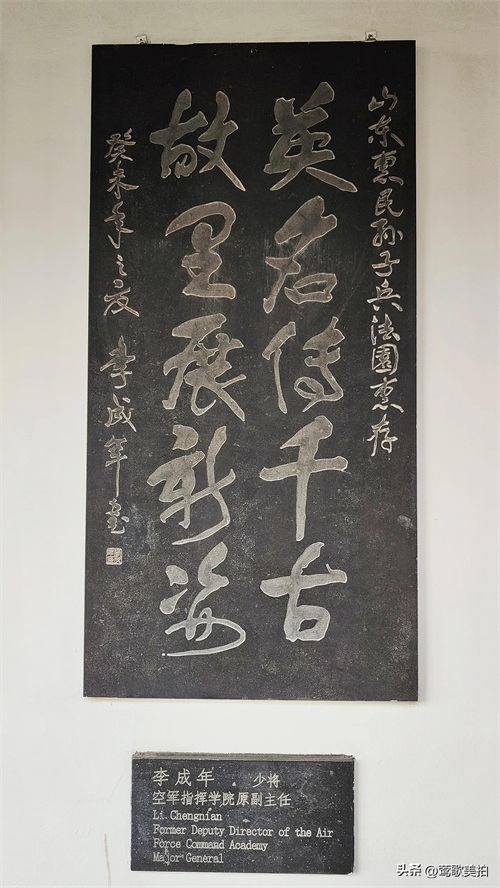 山东惠民孙子兵法园惠存
英名传千古
故里展新姿
癸未年之夏 李成年書
李成年 少将
空军指挥学院原副主任
Li Chengnian
Former Deputy Director of the Air
Force Command Academy
Major General
头条 @莺歌美拍